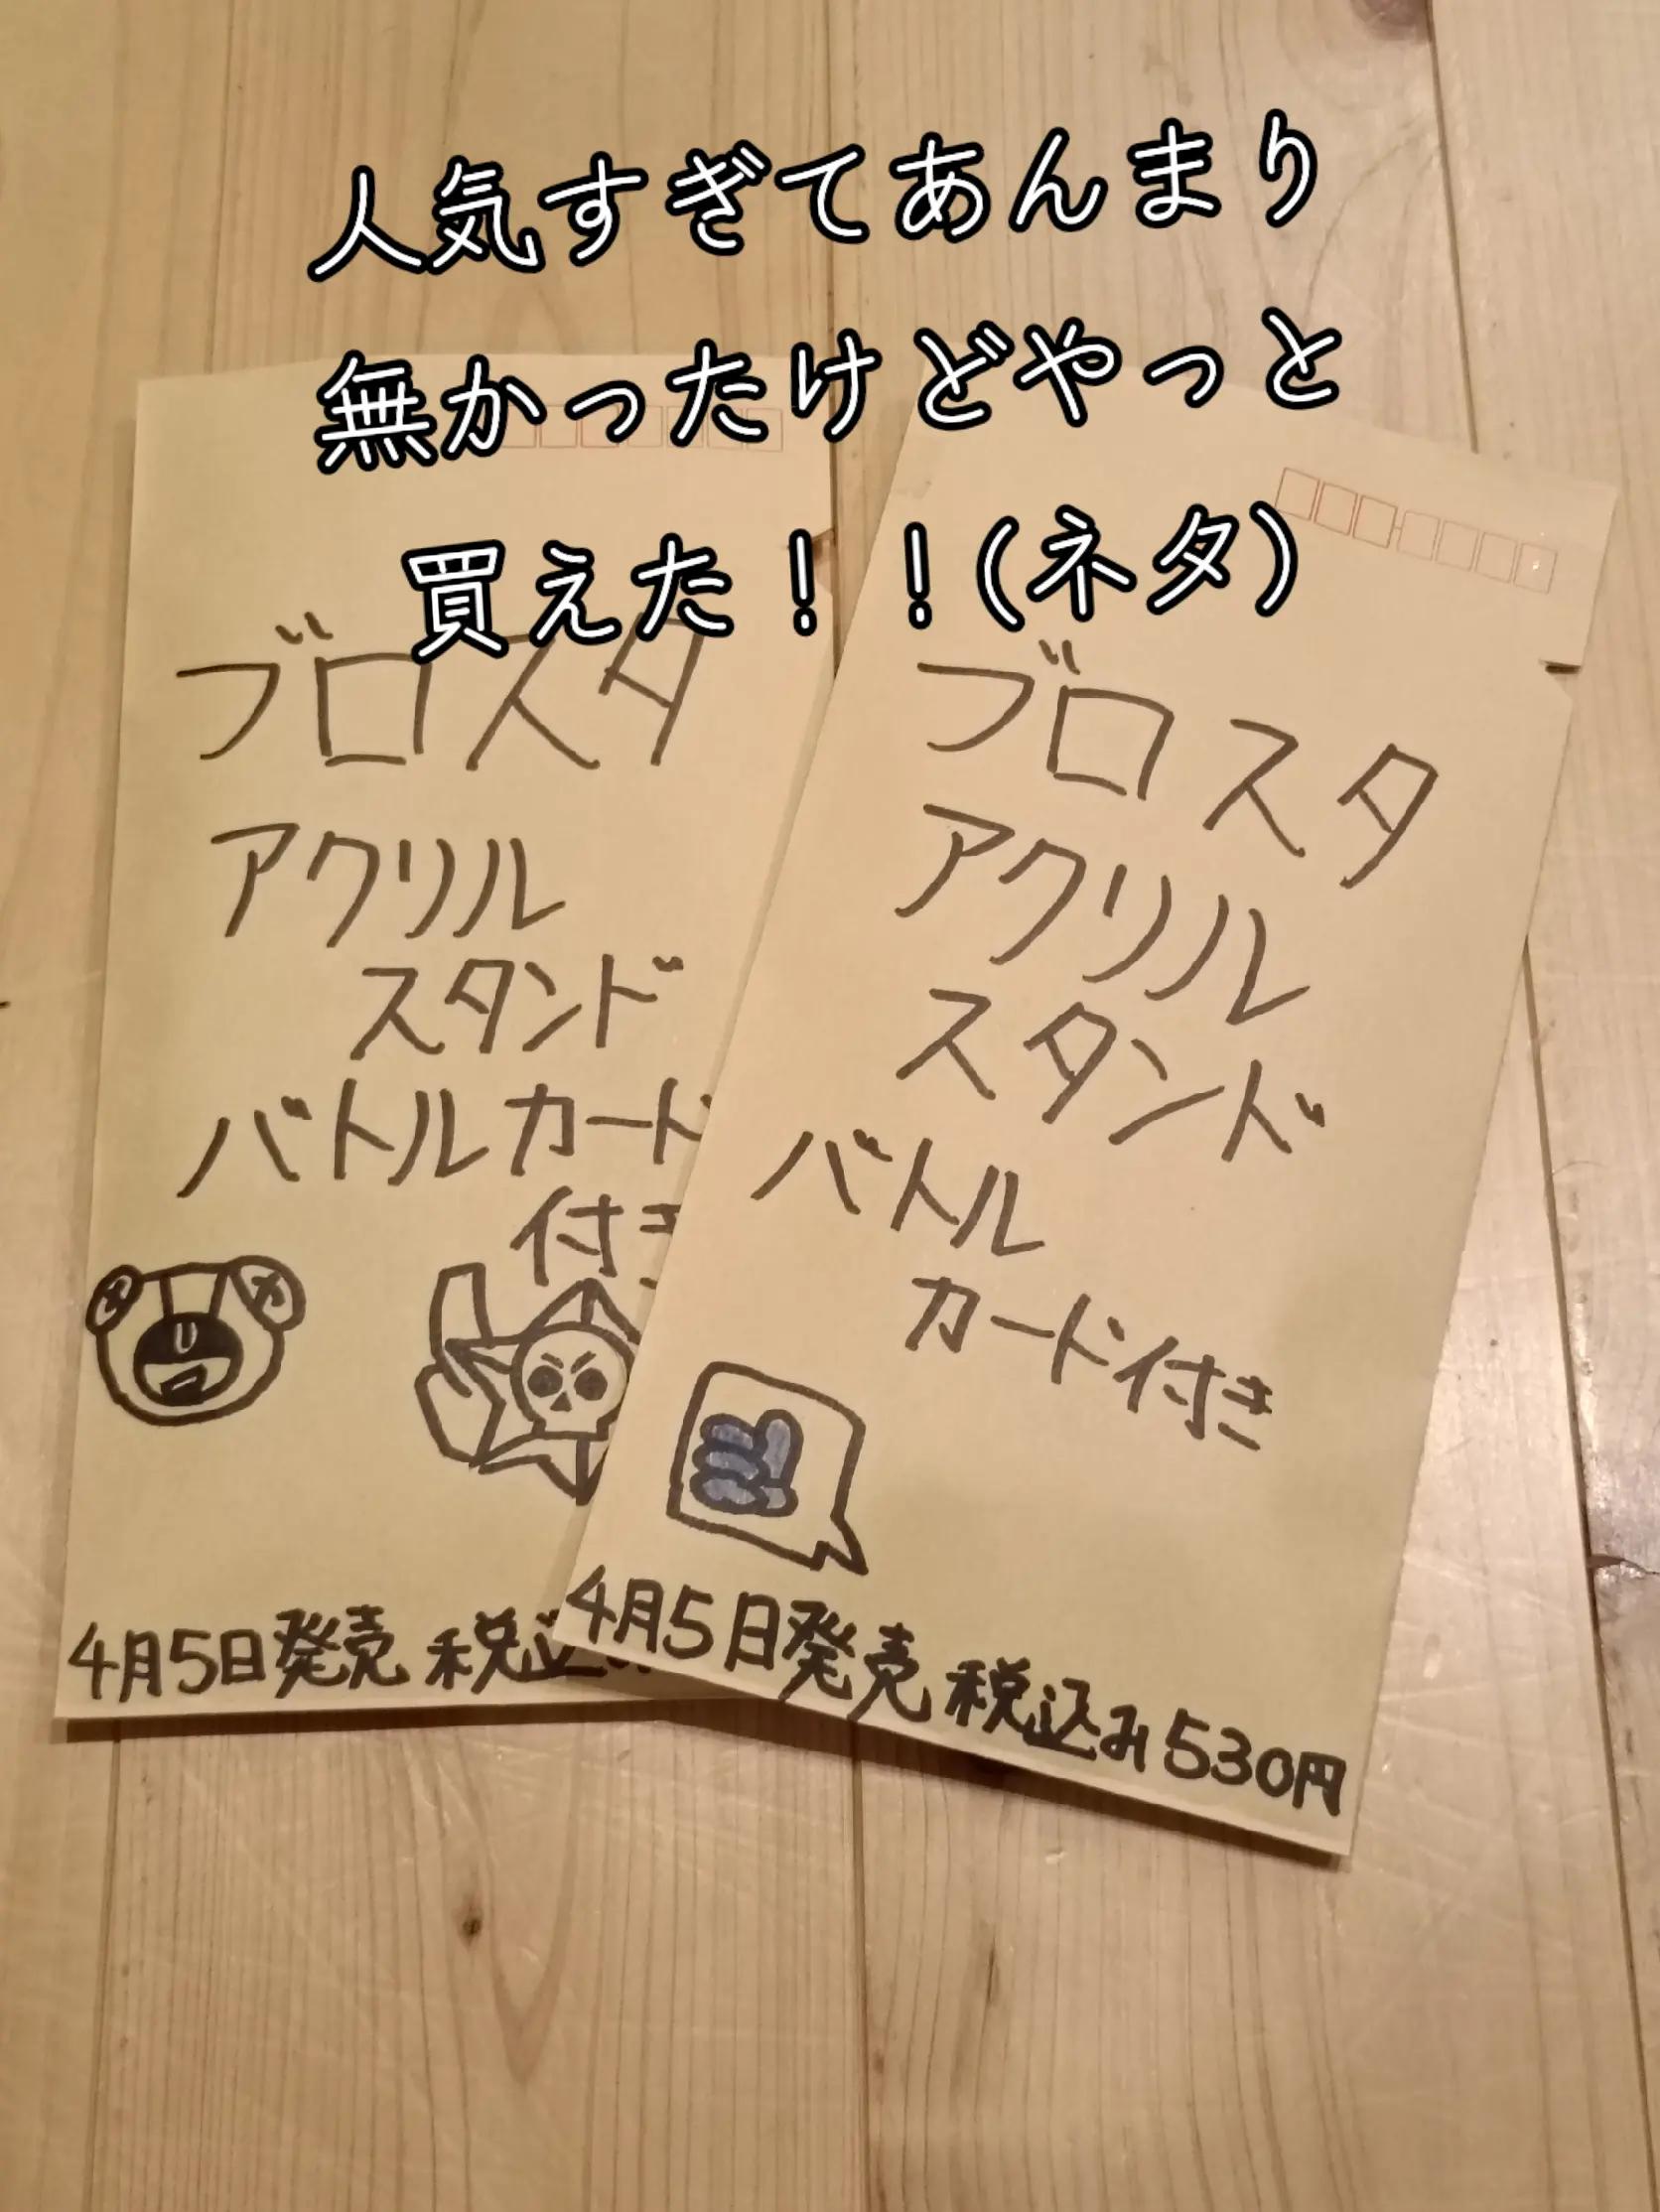 人気すぎてあんまり
無かったけどやっと
買えた！！(ネタ)
ブロスタ
アクリル
スタンド
バトルカード
付き
4月5日発売 税込
ブロスタ
アクリル
スタンド
バトル
カード付き
4月5日発売 税込み530円